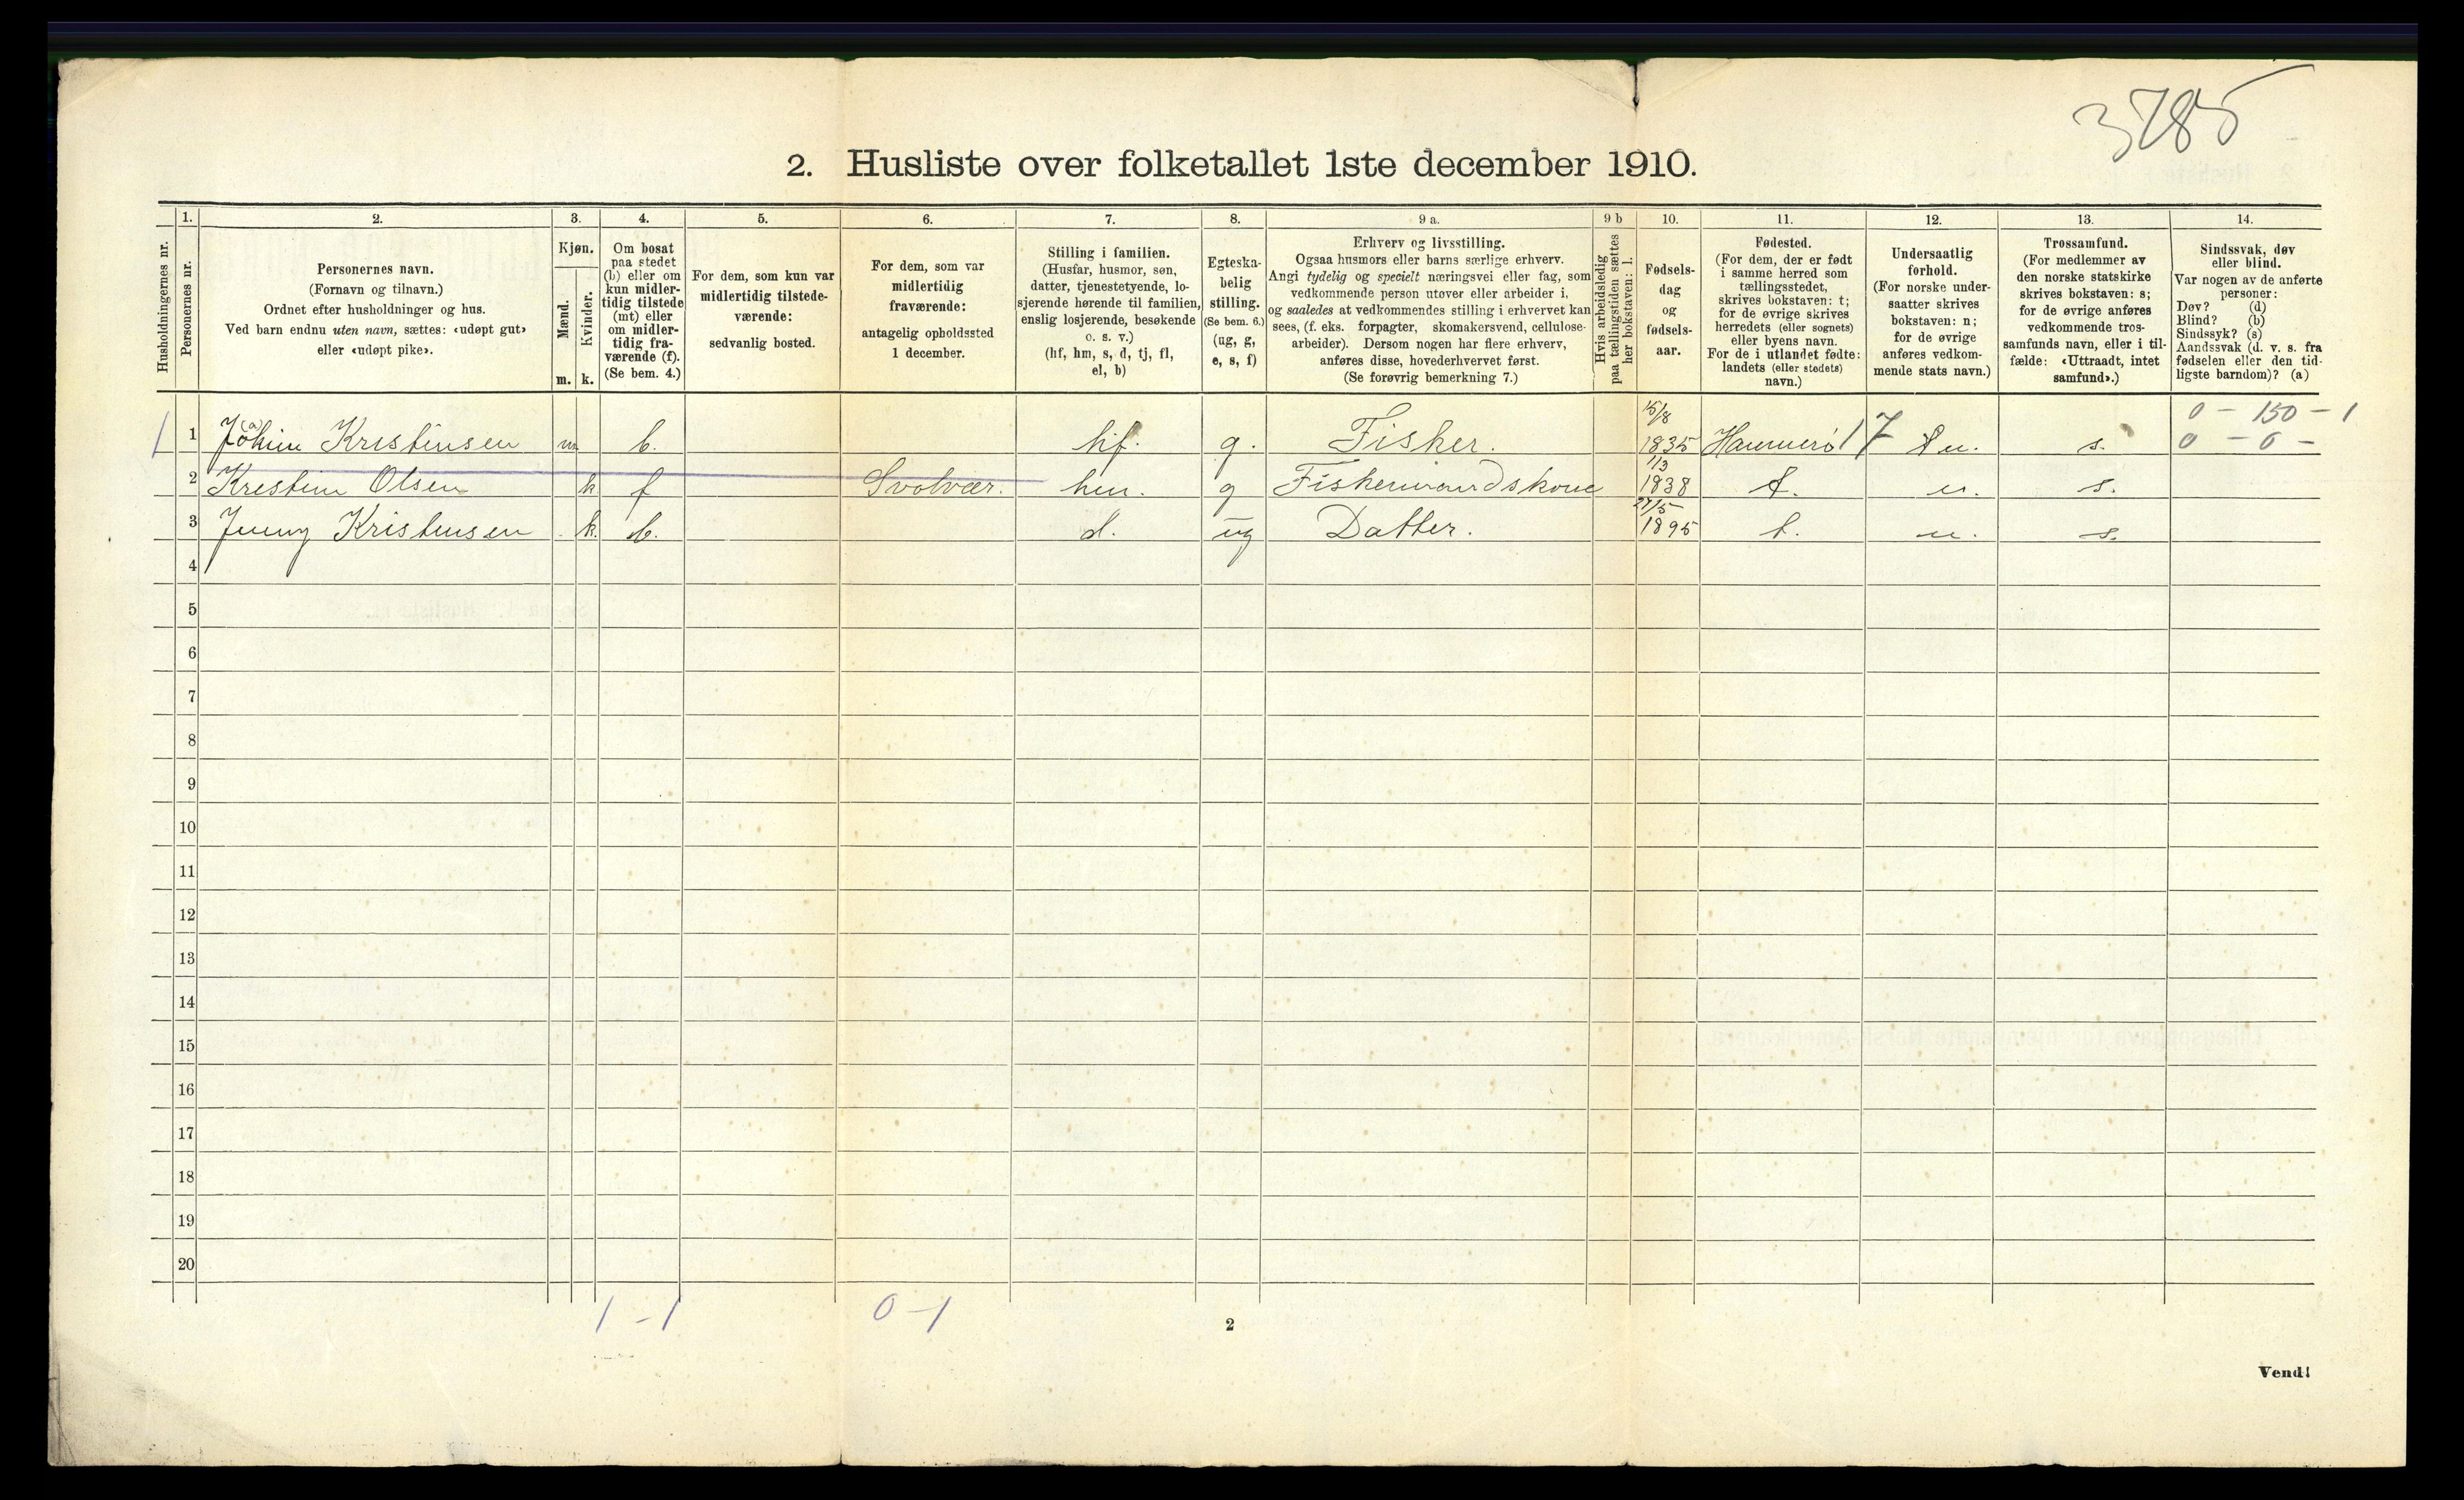 3785
2. Husliste over folketallet 1ste december 1910.
Husholdningernes nr.
1.
Personernes nr.
2.
Personernes navn.
(Fornavn og tilnavn.)
Ordnet efter husholdninger og hus.
Ved barn endnu uten navn, sættes: «udøpt gut»
eller «udøpt pike».
3.
Kjøn.
Mænd.
Kvinder.
m. k.
4.
Om bosat
paa stedet
(b) eller om
kun midler-
tidig tilstede
(mt) eller
om midler-
tidig fra-
værende (f).
(Se bem. 4.)
5.
For dem, som kun var
midlertidig tilstede-
værende:
sedvanlig bosted.
6.
For dem, som var
midlertidig
fraværende:
antagelig opholdssted
1 december.
7.
Stilling i familien.
(Husfar, husmor, søn,
datter, tjenestetyende, lo-
sjerende hørende til familien,
enslig losjerende, besøkende
o. s. v.)
(hf, hm, s, d, tj, fl,
el, b)
8.
Egteska-
belig
stilling.
(Se bem. 6.)
(ug, g,
e, s, f)
9 a.
Erhverv og livsstilling.
Ogsaa husmors eller barns særlige erhverv.
Angi tydelig og specielt næringsvei eller fag, som
vedkommende person utøver eller arbeider i,
og saaledes at vedkommendes stilling i erhvervet kan
sees, (f. eks. forpagter, skomakersvend, cellulose-
arbeider). Dersom nogen har flere erhverv,
anføres disse, hovederhvervet først.
(Se forøvrig bemerkning 7.)
9 b
Hvis arbeidsledig
paa tællingstiden sættes
her bokstaven: l.
10.
Fødsels-
dag
og
fødsels-
aar.
11.
Fødested.
(For dem, der er født
i samme herred som
tællingsstedet,
skrives bokstaven: t;
for de øvrige skrives
herredets (eller sognets)
eller byens navn.
For de i utlandet fødte:
landets (eller stedets)
navn.)
12.
Undersaatlig
forhold.
(For norske under-
saatter skrives
bokstaven: n;
for de øvrige
anføres vedkom-
mende stats navn.)
13.
Trossamfund.
(For medlemmer av
den norske statskirke
skrives bokstaven: s;
for de øvrige anføres
vedkommende tros-
samfunds navn, eller i til-
fælde: «Uttraadt, intet
samfund».)
14.
Sindssvak, døv
eller blind.
Var nogen av de anførte
personer:
Døv? (d)
Blind? (b)
Sindssyk? (s)
Aandssvak (d. v. s. fra
fødselen eller den tid-
ligste barndom)? (a)
0 - 150 - 1
1 1 Kristensen m b. hf. g. Fisker. 15/8 1835 Hammerø 17 n. s. 0 - 0 -
2 Krestine Olsen k f Svolvær. hm. g Fiskermandskone 1/3 1838 t. n. s.
3 Jenny Kristensen k. b. d. ug Datter. 27/5 1895 t. n. s.
4
5
6
7
8
9
10
11
12
13
14
15
16
17
18
19
20
1 - 1 0 - 1
2
Vend!